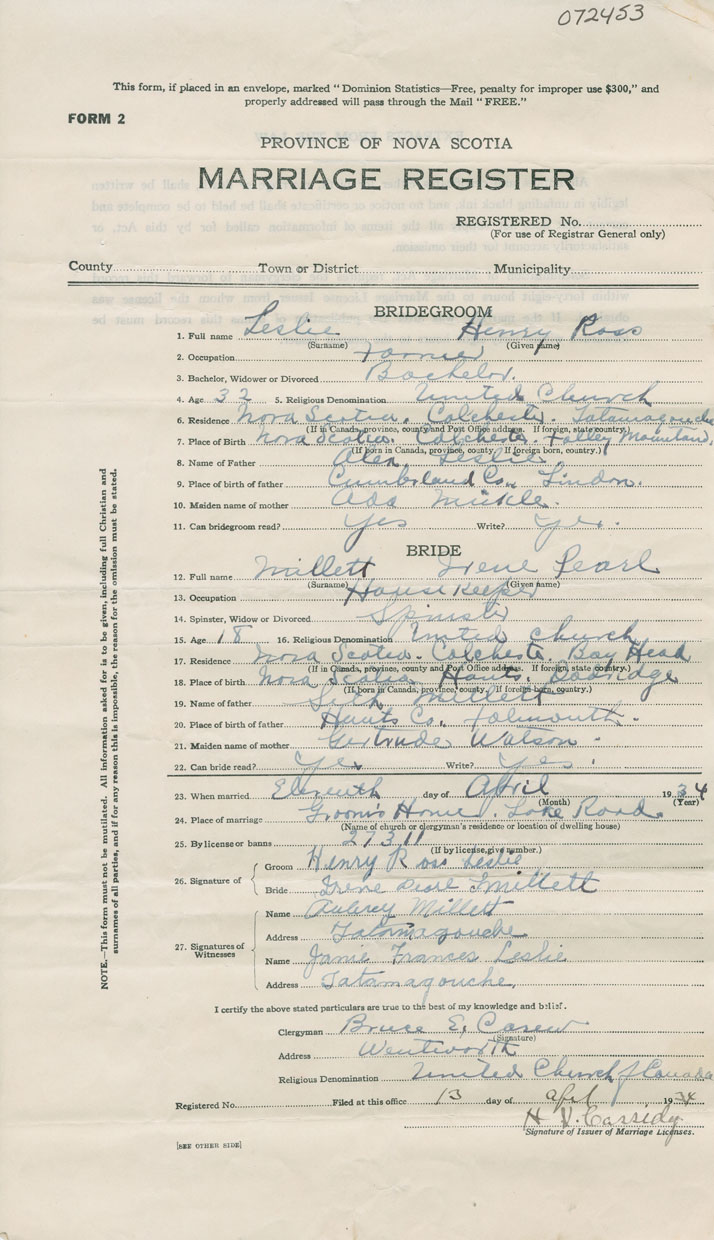 072453
This form, if placed in an envelope, marked "Dominion Statistics—Free, penalty for improper use $300," and
properly addressed will pass through the Mail "FREE."
FORM 2
PROVINCE OF NOVA SCOTIA
MARRIAGE REGISTER
REGISTERED No.
(For use of Registrar General only)
County Town or District Municipality
BRIDEGROOM
1. Full name Leslie Henry Ross
(Surname) (Given name)
2. Occupation Farmer
3. Bachelor, Widower or Divorced Bachelor.
4. Age 32 5. Religious Denomination United Church
6. Residence Nova Scotia. Colchester. Tatamagouche
(If in Canada, province, county and Post Office address. If foreign, state country.)
7. Place of Birth Nova Scotia. Colchester. Folley Mountain,
(If born in Canada, province, county. If foreign born, country.)
8. Name of Father Alex. Leslie.
9. Place of birth of father Cumberland Co., Lindon.
10. Maiden name of mother Ada Mickle.
11. Can bridegroom read? Yes Write? Yes.
BRIDE
12. Full name Millett Irene Pearl
(Surname) (Given name)
13. Occupation House Keeper
14. Spinster, Widow or Divorced Spinster
15. Age 18 16. Religious Denomination United Church
17. Residence Nova Scotia. Colchester. Bay Head
(If in Canada, province, county and Post Office address. If foreign, state country.)
18. Place of birth Nova Scotia Hants.
(If born in Canada, province, county. If foreign born, country.)
19. Name of father Millett
20. Place of birth of father Hants Co. Falmouth.
21. Maiden name of mother Gertrude Watson.
22. Can bride read? Yes Write? Yes.
23. When married Eleventh day of April 1934
(Month) (Year)
24. Place of marriage Groom's Home. Lake Road.
(Name of church or clergyman's residence or location of dwelling house)
25. By license or banns 27311
(If by license, give number.)
26. Signature of Groom Henry Ross Leslie
Bride Irene Pearl Millett
27. Signatures of Witnesses Name Aubrey Millett
Address Tatamagouche
Name Janie Frances Leslie
Address Tatamagouche,
I certify the above stated particulars are true to the best of my knowledge and belief.
Clergyman Bruce E.
(Signature)
Address Wentworth
Religious Denomination United Church of Canada
Registered No. Filed at this office 13 day of April 1934
H. V. Cassidy
Signature of Issuer of Marriage Licenses.
[SEE OTHER SIDE]
NOTE.—This form must not be mutilated. All information asked for is to be given, including full Christian and
surnames of all parties, and if for any reason this is impossible, the reason for the omission must be stated.